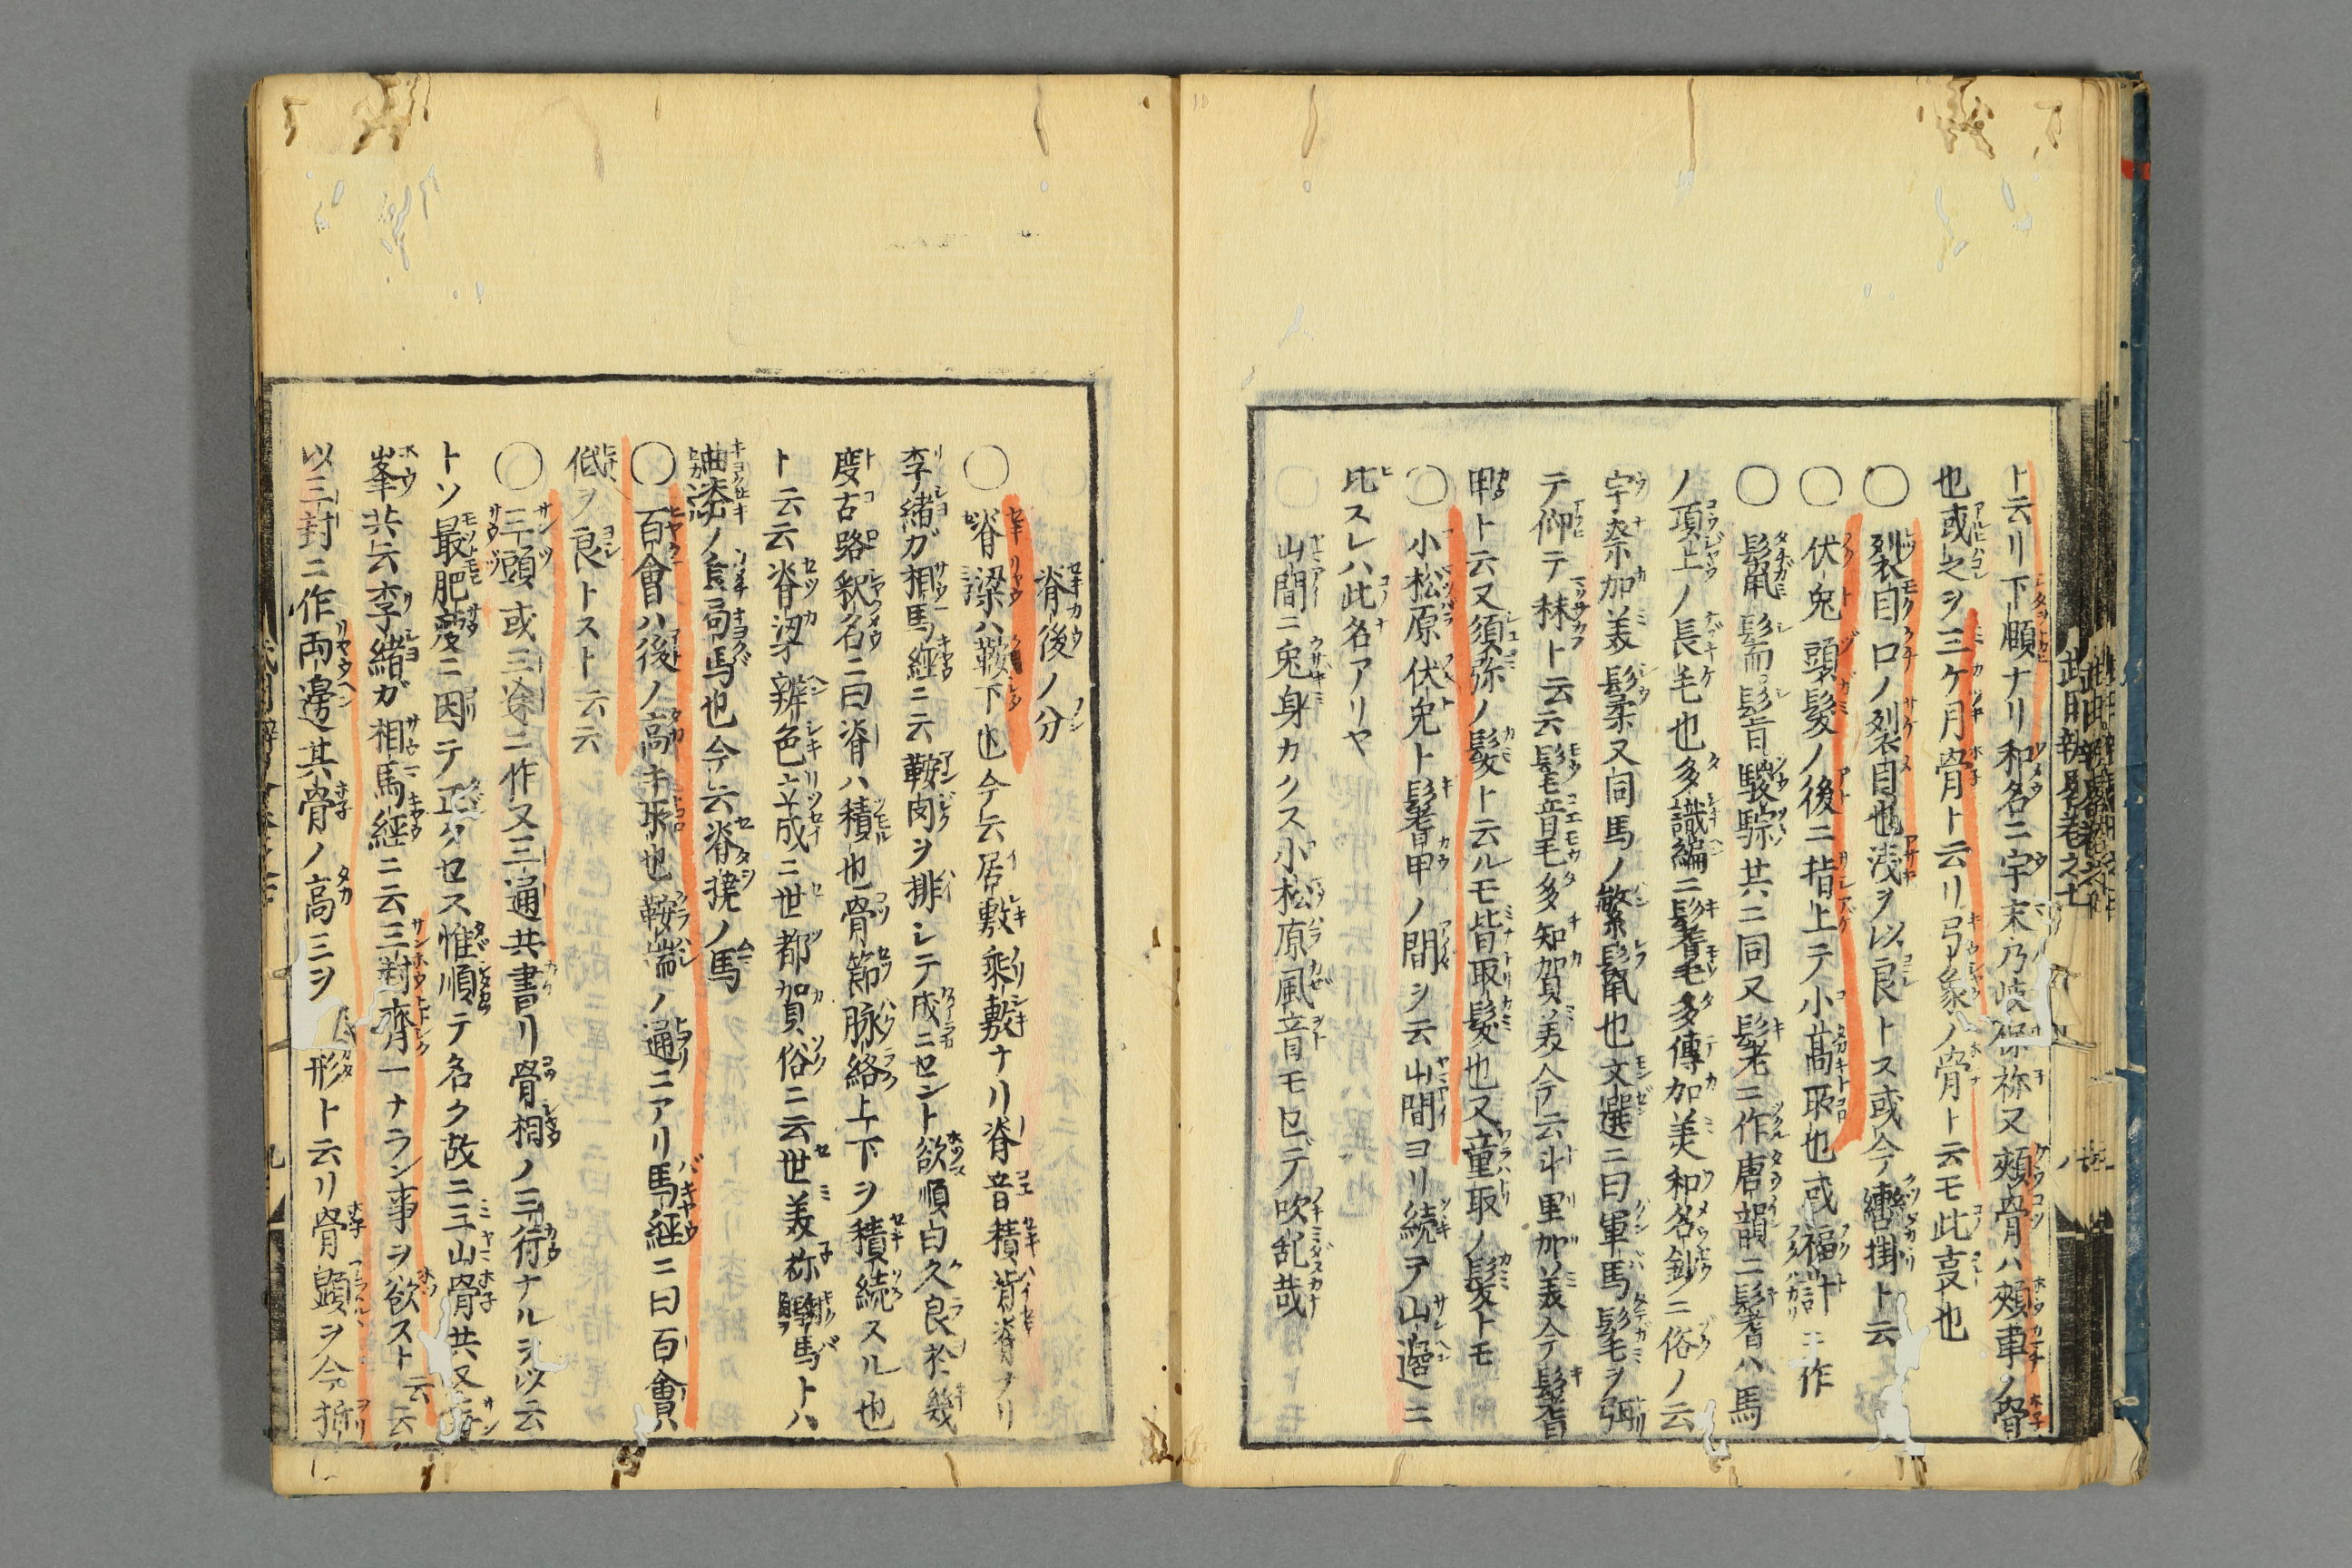 ト云リ下願ナリ和名ニ宇末乃岐保祢又頰骨ハ頰車ノ骨
也或之ヲ三ケ月骨ト云リ弓象ノ骨ト云モ此支也
○裂目口ノ裂目也浅ヲ以良トス或今轡掛ト云
○伏兎頭髮ノ後ニ揩上テ小髙取也或福計ニ作
○鬣髵鬐駿騌共ニ同又髦ニ作唐韻ニ鬐ハ馬
ノ項上ノ長毛也多識編ニ鬐毛多傳加美和名鈔ニ俗ノ云
宇奈加美髹又同馬ノ繁鬣也文選ニ曰軍馬髦ヲ弭
テ仰テ秣ト云云髦音毛多知賀美今云斗里加美今鬐
甲ト云又須弥ノ髮ト云ルモ皆取髮也又童取ノ髮トモ
○小松原伏兎ト鬐甲ノ間ヲ云山間ヨリ続ヲ山邊ニ
比スレハ此名アリヤ
○山間ニ兎身カクス小松原風音モセデ吹乱哉
脊後ノ分
○脊梁ハ鞍下也今云居敷乘敷ナリ脊音積背脊ナリ
李緒ガ相馬經ニ云鞍肉ヲ排シテ成ニセント欲順白久良於幾
度古路釈名ニ曰脊ハ積也骨節脉絡上下ヲ積続スル也
ト云云脊梁辨色立成ニ世都加俗ニ云世美祢騂馬トハ
曲脊ノ長局馬也今云脊撓ノ馬
○百會ハ後ノ高キ取也鞍崙ノ通ニアリ馬經ニ曰百會ハ
低ヲ良トスト云云
○三頭或三途ニ作又三通共書リ骨相ノ三行ナルヲ以云
トソ最肥瘦ニ因テ正クセス惟順テ名ク故ニ三山骨共又
峯共云李緒ガ相馬經ニ云三封齊一ナラン事ヲ欲スト云云
以三封ニ作両邊其骨ノ高三ヲ形ト云リ骨顕ヲ今折